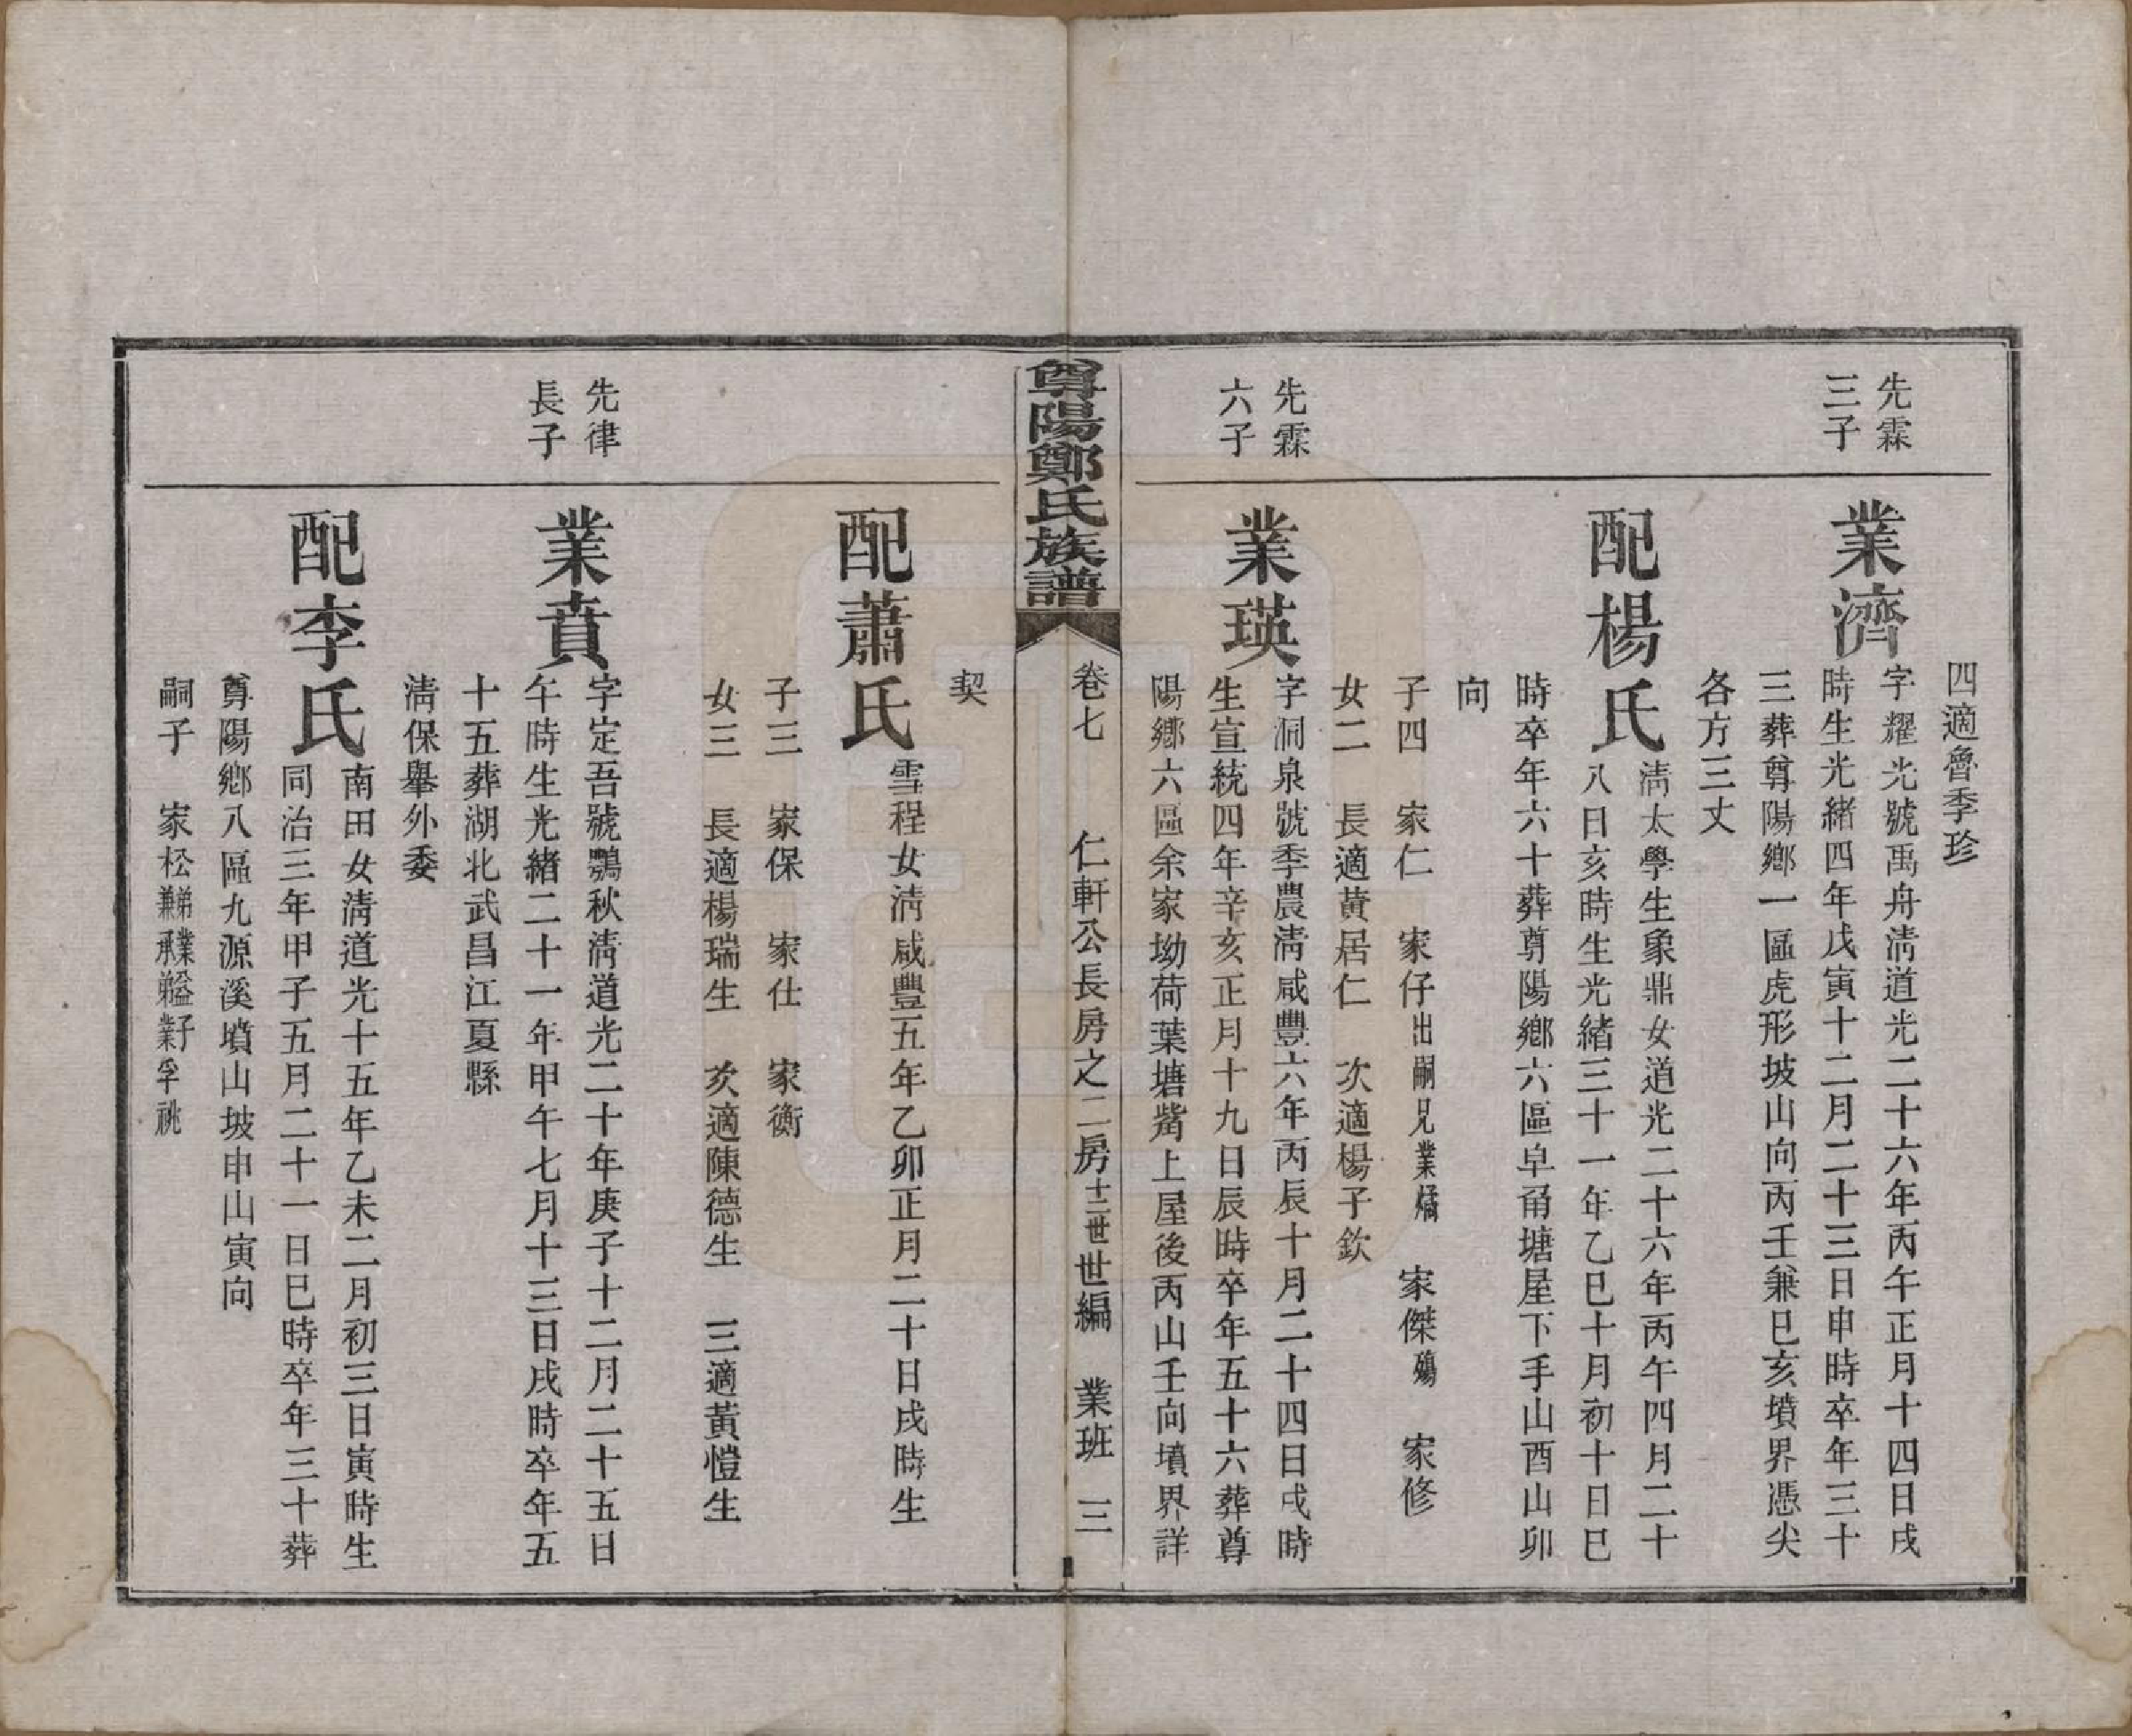 四適魯季珍
先霖
三子
業濟
字耀光號禹舟淸道光二十六年丙午正月十四日戌
時生光緖四年戊寅十二月二十三日申時卒年三十
三葬尊陽鄕一區虎形坡山向丙壬兼巳亥墳界憑尖
各方三丈
配楊氏
淸太學生象鼎女道光二十六年丙午四月二十
八日亥時生光緖三十一年乙巳十月初十日巳
時卒年六十葬尊陽鄕六區皁甬塘屋下手山酉山卯
向
子四 家仁 家仔出嗣兄業燏 家傑殤 家修
女二 長適黃居仁 次適楊子欽
先霖
六子
業瑛
字洞泉號季農淸咸豐六年丙辰十月二十四日戌時
生宣統四年辛亥正月十九日辰時卒年五十六葬尊
陽鄕六區余家坳荷葉塘觜上屋後丙山壬向墳界詳
尊陽鄭氏族譜
卷七 仁軒公長房之二房十二世世編 業班 三
契
配蕭氏
雪程女淸咸豐五年乙卯正月二十日戌時生
子三 家保 家仕 家衡
女三 長適楊瑞生 次適陳德生 三適黃愷生
先律
長子
業賁
字定吾號鶚秋淸道光二十年庚子十二月二十五日
午時生光緖二十一年甲午七月十三日戌時卒年五
十五葬湖北武昌江夏縣
淸保舉外委
配李氏
南田女淸道光十五年乙未二月初三日寅時生
同治三年甲子五月二十一日巳時卒年三十葬
尊陽鄕八區九源溪墳山坡申山寅向
嗣子 家松弟業益子兼承弟業孚祧